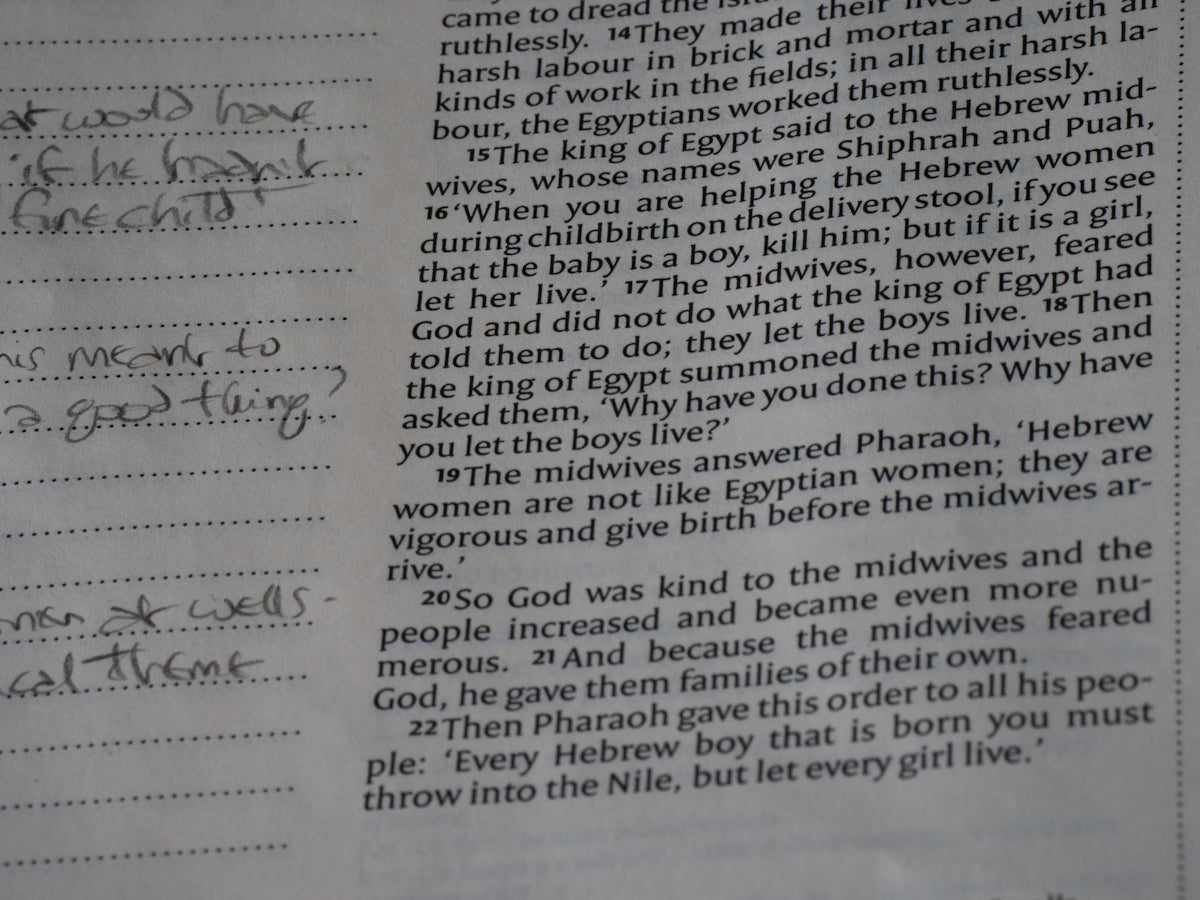 would have
if he hadn't
fine child'
meant to
a good thing?
at wells -
theme
came to dread the
ruthlessly. 14They made their lives
harsh labour in brick and mortar and with all
kinds of work in the fields; in all their harsh la-
bour, the Egyptians worked them ruthlessly.
15The king of Egypt said to the Hebrew mid-
wives, whose names were Shiphrah and Puah,
16‘When you are helping the Hebrew women
during childbirth on the delivery stool, if you see
that the baby is a boy, kill him; but if it is a girl,
let her live.’ 17The midwives, however, feared
God and did not do what the king of Egypt had
told them to do; they let the boys live. 18Then
the king of Egypt summoned the midwives and
asked them, ‘Why have you done this? Why have
you let the boys live?’
19The midwives answered Pharaoh, ‘Hebrew
women are not like Egyptian women; they are
vigorous and give birth before the midwives ar-
rive.’
20So God was kind to the midwives and the
people increased and became even more nu-
merous. 21And because the midwives feared
God, he gave them families of their own.
22Then Pharaoh gave this order to all his peo-
ple: ‘Every Hebrew boy that is born you must
throw into the Nile, but let every girl live.’